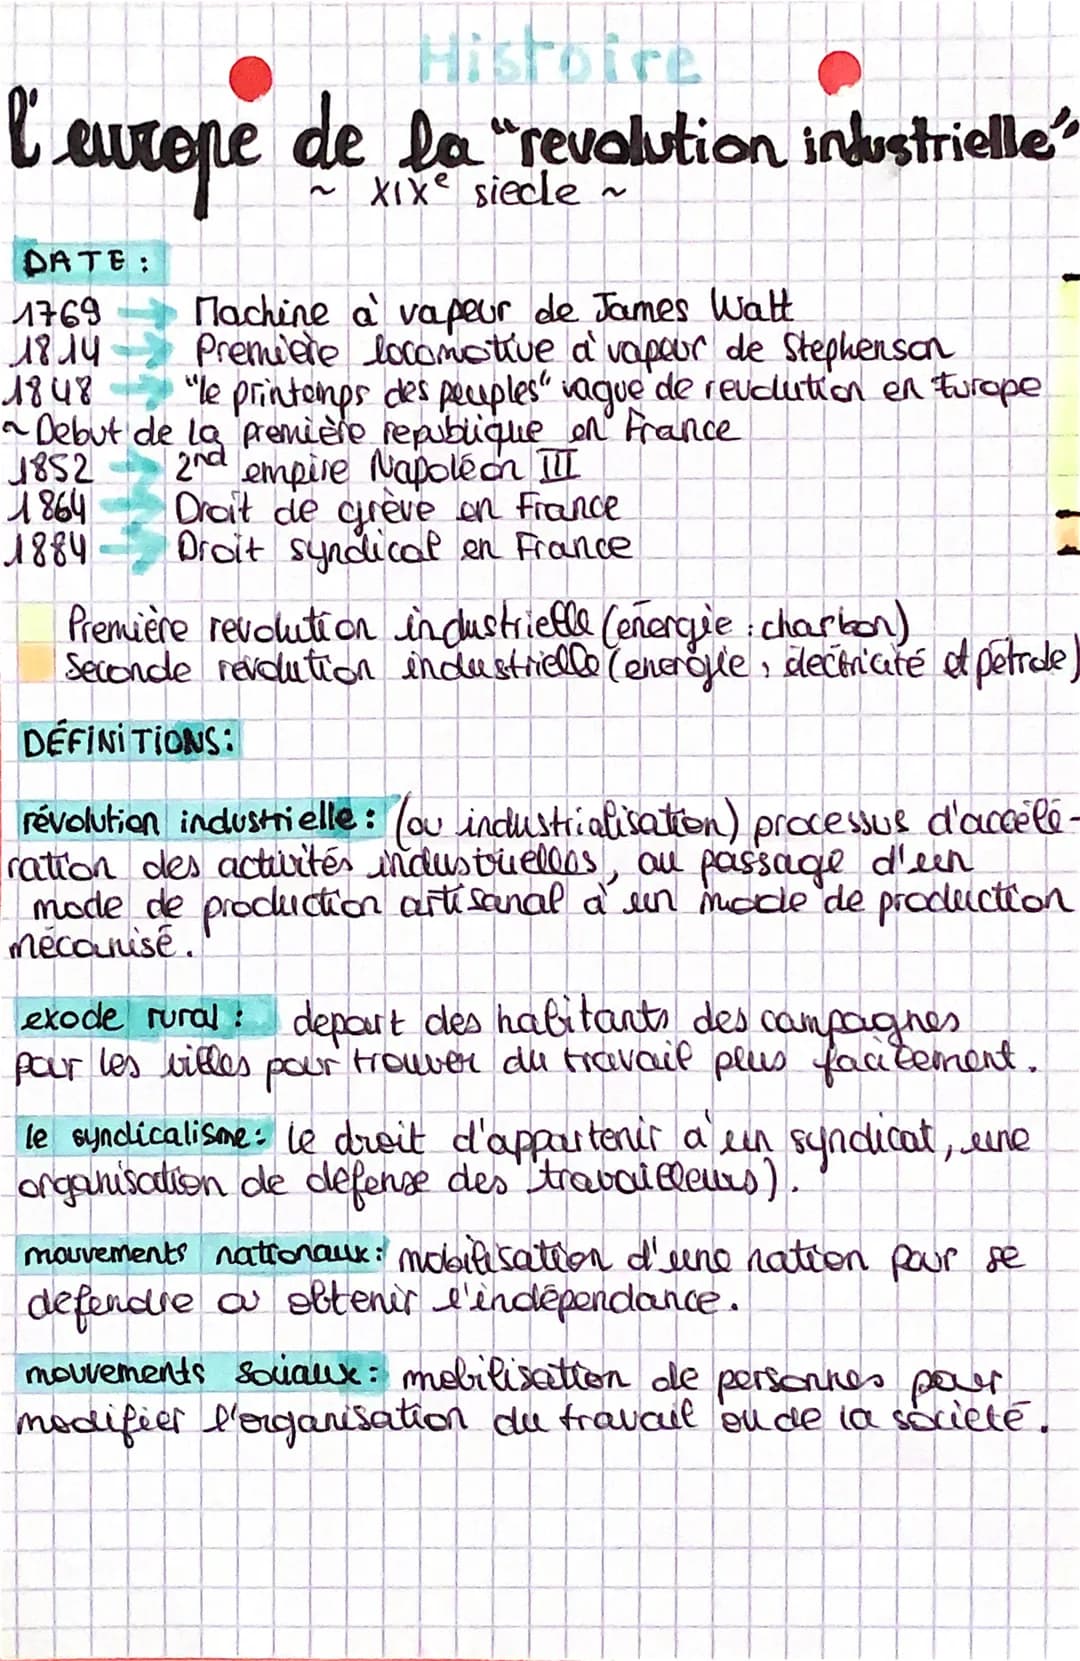 Histoire
l'europe de la "revolution industrielle"
~ XIXe siecle ~
DATE :
1769 → Machine à vapeur de James Watt
1814 → Première locomotive à vapeur de Stephenson
1848 → "le printemps des peuples" vague de revolution en Europe
~ Debut de la première republique en France
1852 → 2nd empire Napoléon III
1864 → Droit de grève en France
1884 → Droit syndical en France
Première revolution industrielle (énergie : charbon)
Seconde revolution industrielle (energie, électricité et pétrole)
DÉFINITIONS:
révolution industrielle : (ou industrialisation) processus d'accélé-
ration des activités industrielles, au passage d'un
mode de production artisanal à un mode de production
mécanisé.
exode rural : depart des habitants des campagnes
pour les villes pour trouver du travail plus facilement.
le syndicalisme : le droit d'appartenir à un syndicat, une
organisation de défense des travailleurs).
mouvements nationaux : mobilisation d'une nation pour se
defendre ou obtenir l'indépendance.
mouvements sociaux : mobilisation de personnes pour
modifier l'organisation du travail ou de la société.